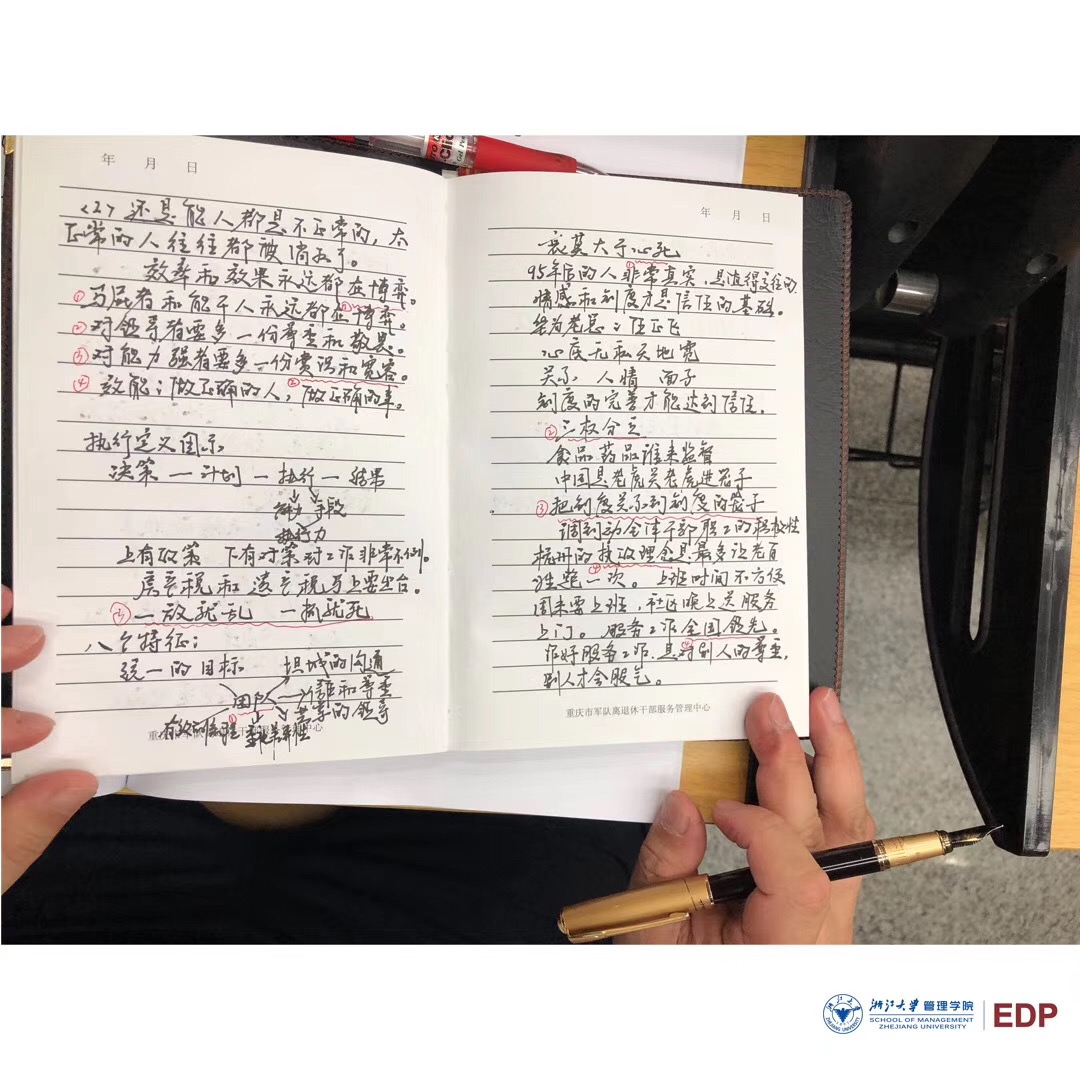 年 月 日
<2> 还是能人都是不正常的，太
正常的人往往都被消灭了。
效率和效果永远都在博弈。
① 马屁者和能干人永远都在博弈。
② 对领导者要多一份尊重和敬畏。
③ 对能力强者要多一份赏识和宽容。
④ 效能：做正确的人，②做正确的事。
执行定义图示
决策 — 计划 — 执行 — 结果
能力 手段
执行力
上有政策 下有对策对工作非常不利。
房产税和遗产税马上要出台。
一放就乱 一抓就死
八个特征：
统一的目标 坦诚的沟通
团队 信赖和尊重
①
共享的领导
年 月 日
哀莫大于心死
①
95年后的人非常真实，是值得交往的
情感和制度才是信任的基础。
华为老总：任正飞
心底无私天地宽
关系 人情 面子
制度的完善才能达到信任。
② 三权分立
食品药品谁来监督
中国是老虎关老虎进笼子
③ 把制度关系到制度的笼子
调到动全体干部职工的积极性
杭州的执政理念是最多让老百
④
姓跑一次。上班时间不方便
周末要上班，社区晚上送服务
上门。服务工作全国领先。
作好服务工作，是对别人的尊重，
别人才会服气。
重庆市军队离退休干部服务管理中心
浙江大学 管理学院
SCHOOL OF MANAGEMENT
ZHEJIANG UNIVERSITY
EDP